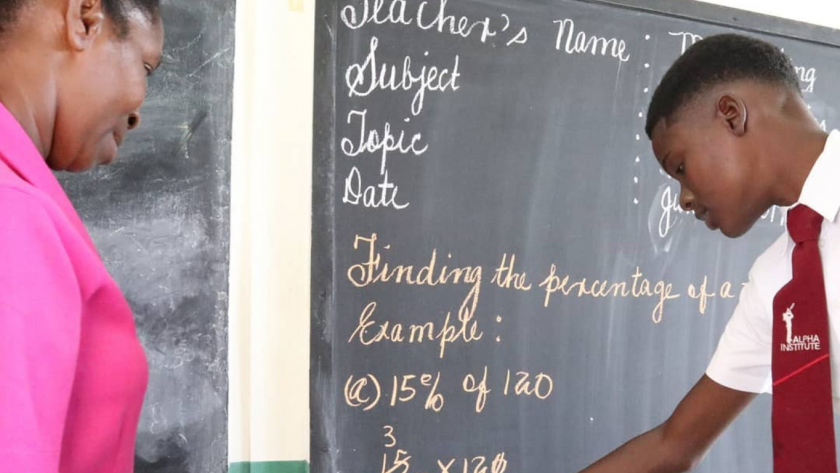 Teacher's Name :
Subject :
Topic :
Date :
Finding the percentage of a
Example :
(a) 15% of 120
3
15 x 120
ALPHA
INSTITUTE